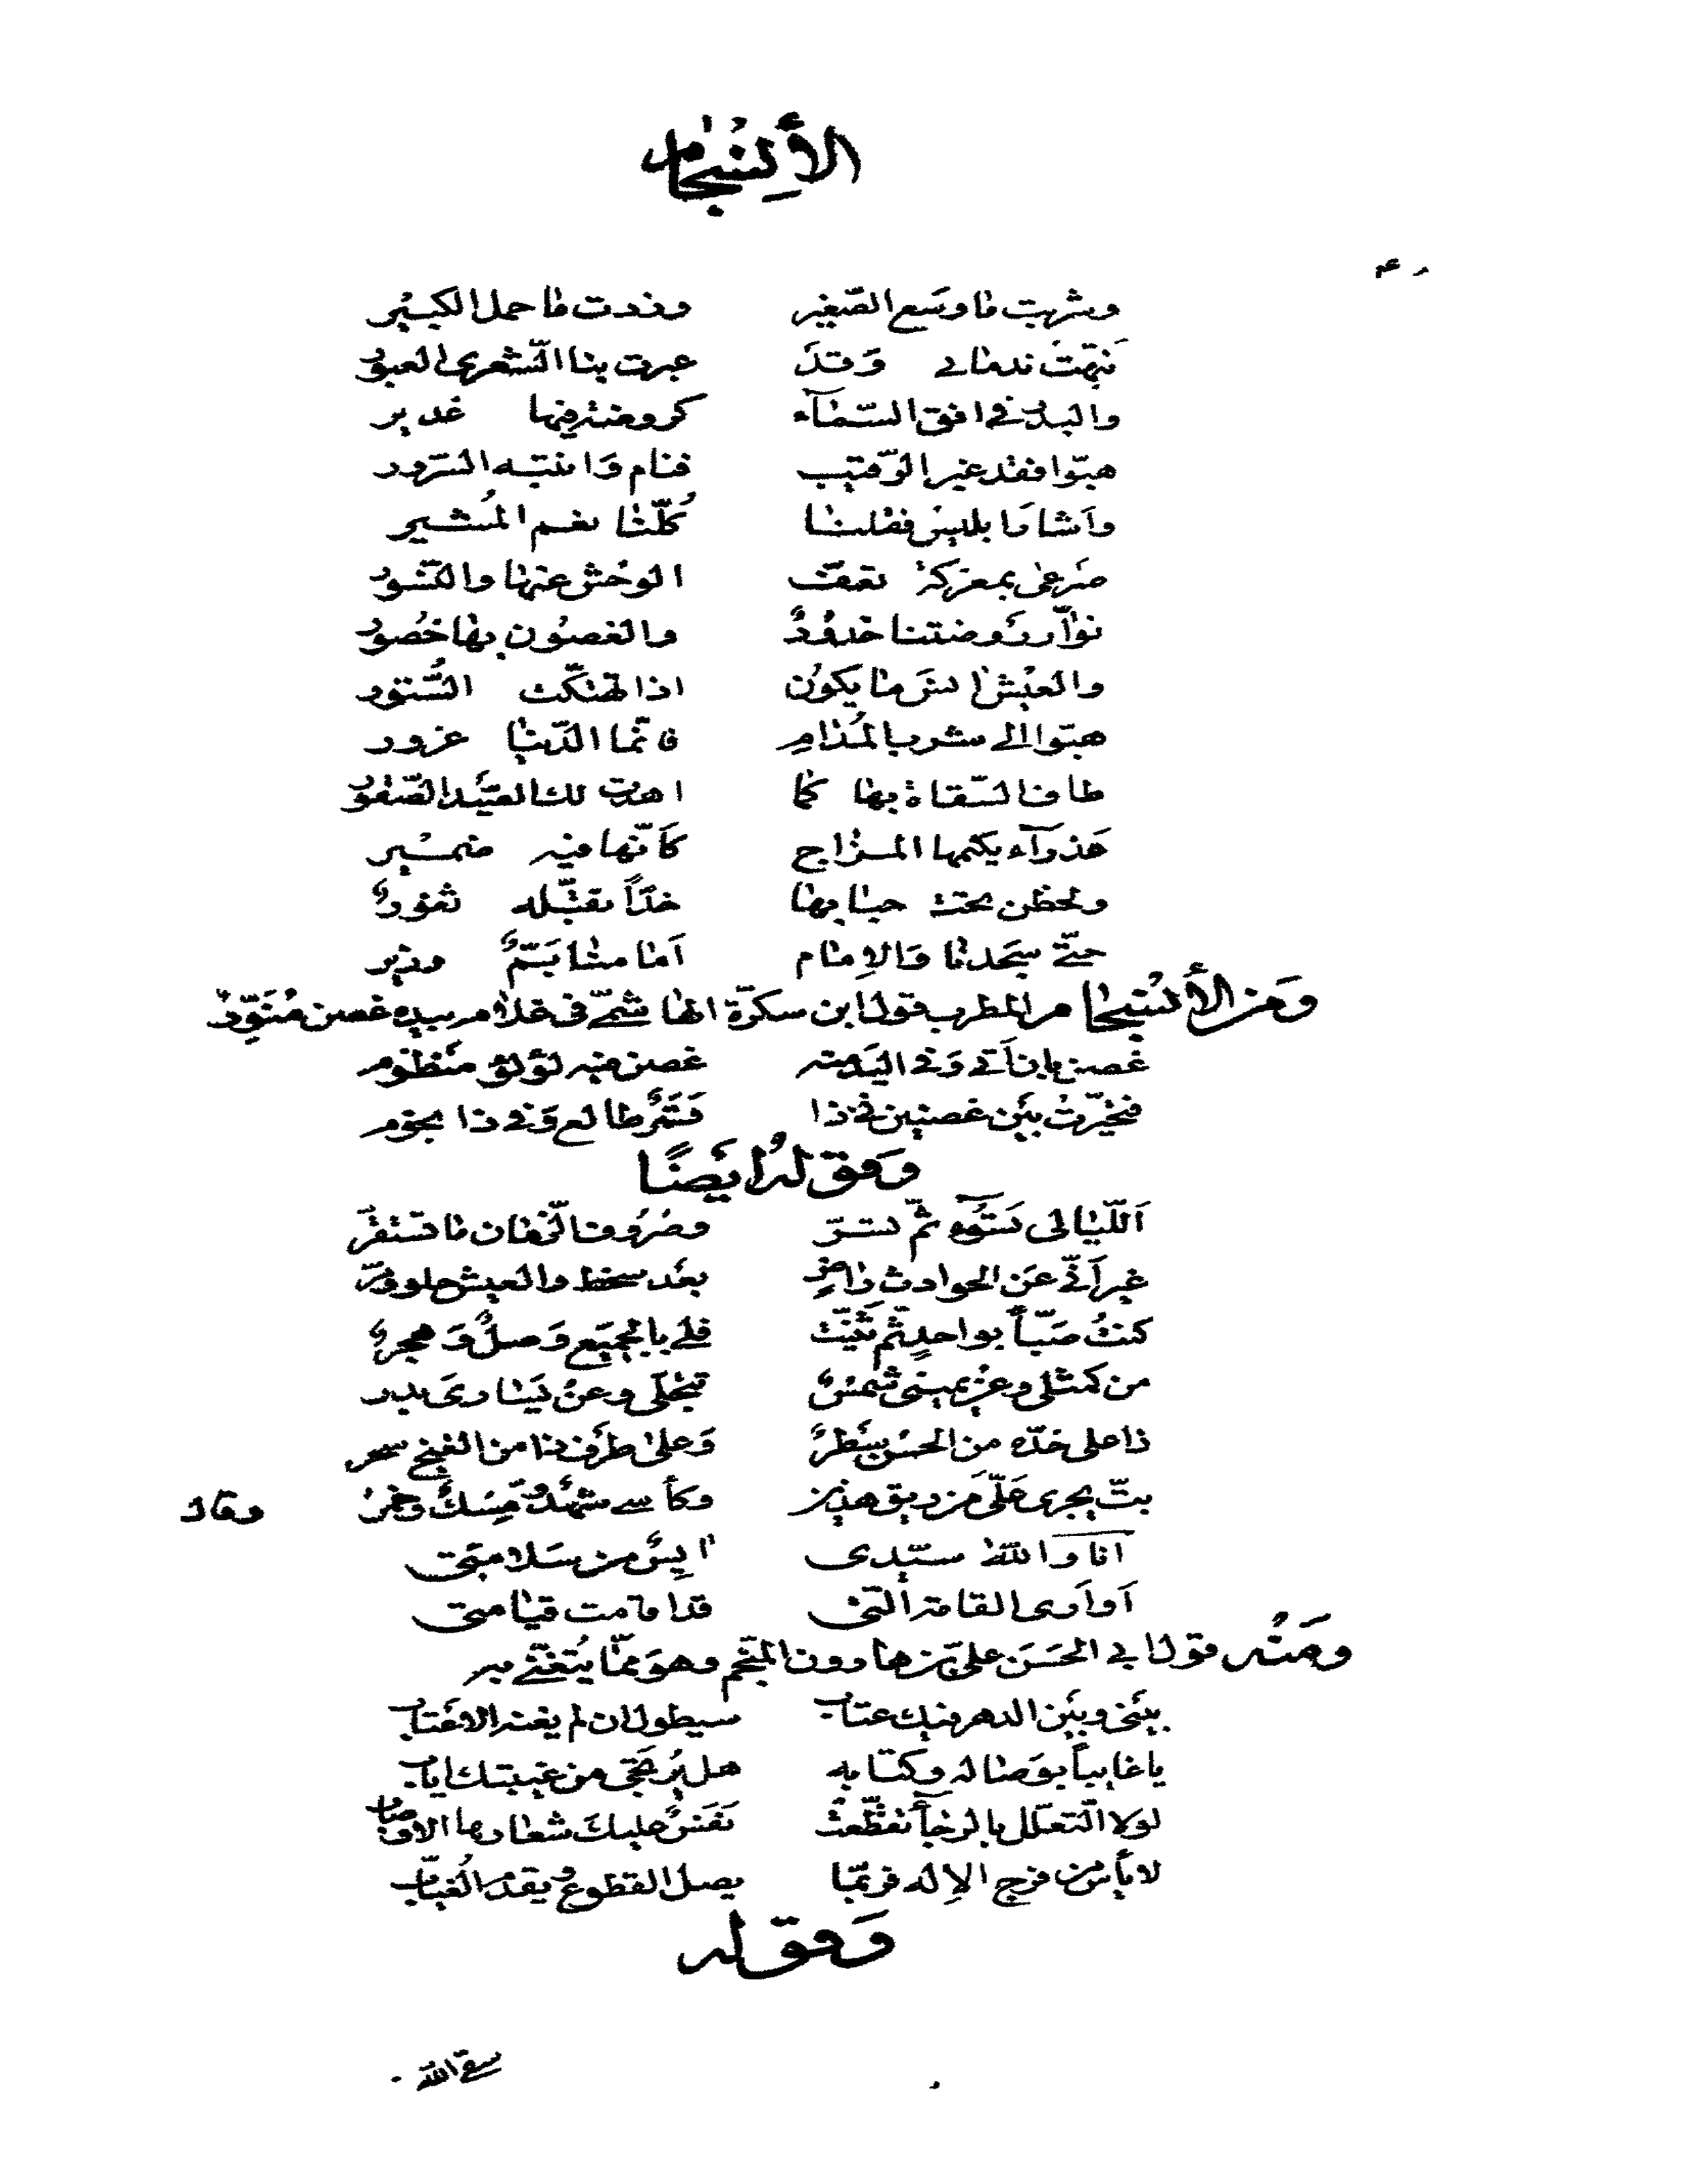 الأِنسِجَام
وشربت ما وسَع الصّغير وزدت ما حمل الكبير
نبّهتُ ندمانى وَقدَ عبرت بنا الشّعرى العبور
والبدر فى افق السّمآء كروضة فيها غدير
هبّوا فقد غير الرّقيب فنام وَانتبه السّرور
واَشار ابليس فقلنا كُلّنا نعم المُشير
صَرعى بمعركة تعفّ الوحْش عنها والنّسور
نوّار رَوضتنا خدودٌ والغصُون بها خصُور
والعيْش استر ما يكون اذا تهتّكت السُّتور
هبّوا الى شرب المُدام فانّما الدّنيا غرور
طاف السّقاة بها كما اهدت لك الصّيد الصّقور
عَذرآء يكتمها المزاج كَأنّها فيه ضمير
وتحظن تحت حبابها خدّاً تقبّله ثغورٌ
حتّى سجدنا وَالاِمام اَمامنا بَمٌّ وزير
وَمن الأنسِجام المطرب قول ابن سكرّة الهاشمّى فى غلام بيده غصن مُنَوّر
غصن بان اَتى وَفى اليَد منه غصن فيه لؤلؤ منظوم
فتحيّرتُ بيَن غصنين فى ذا قَمَرٌ طالع وَفى ذا نجوم
وَقوله ايضًا
اَللّيالى تَسُوٓء ثمّ تسرّ وصُرُوف الزّمان ما تستقرّ
غير اَنّى عَن الحوادث راضٍ بعَد سخط والعيش حلو ومرّ
كنتُ صَبّاً بواحدٍ ثمّ ثنّيت فلى بالجميَع وَصلٌ وَهجرٌ
من كمثلى وعن يمينى شمسٌ تتجلّى وعن يَسارى بدر
ذا على خدّه من الحسْن سَطرٌ وَعلى طرْف ذا من الغنج سحر
بتّ يجرى عَلَّى من ريق هذين وكأسى شهْدٌ ومِسْكٌ وخمرٌ وقال
انا والله سيّدى ايسٌ من سَلامتى
اَو اَرى القامة التى قد اقامت قيامتى
وَمنُه قول ابى الحسَن علىّ بن هارون المنجّم وهوَ ممّا يُتغنّى به
بيَنى وبيَن الدهر فيك عتاب سيطول ان لم يغنه الاعَتاب
يا غايباً بوَصاله وكتابه هل يُرتجَى من غيبتك اياب
لولا التّعلل بالرجآ تقطّعت نفَسٌ عليكَ شعارها الاوصاب
لا يأس من فرج الاِله فربّما يصل القطوعُ ويقدم الغيّاب
وَقوله
سقى الله